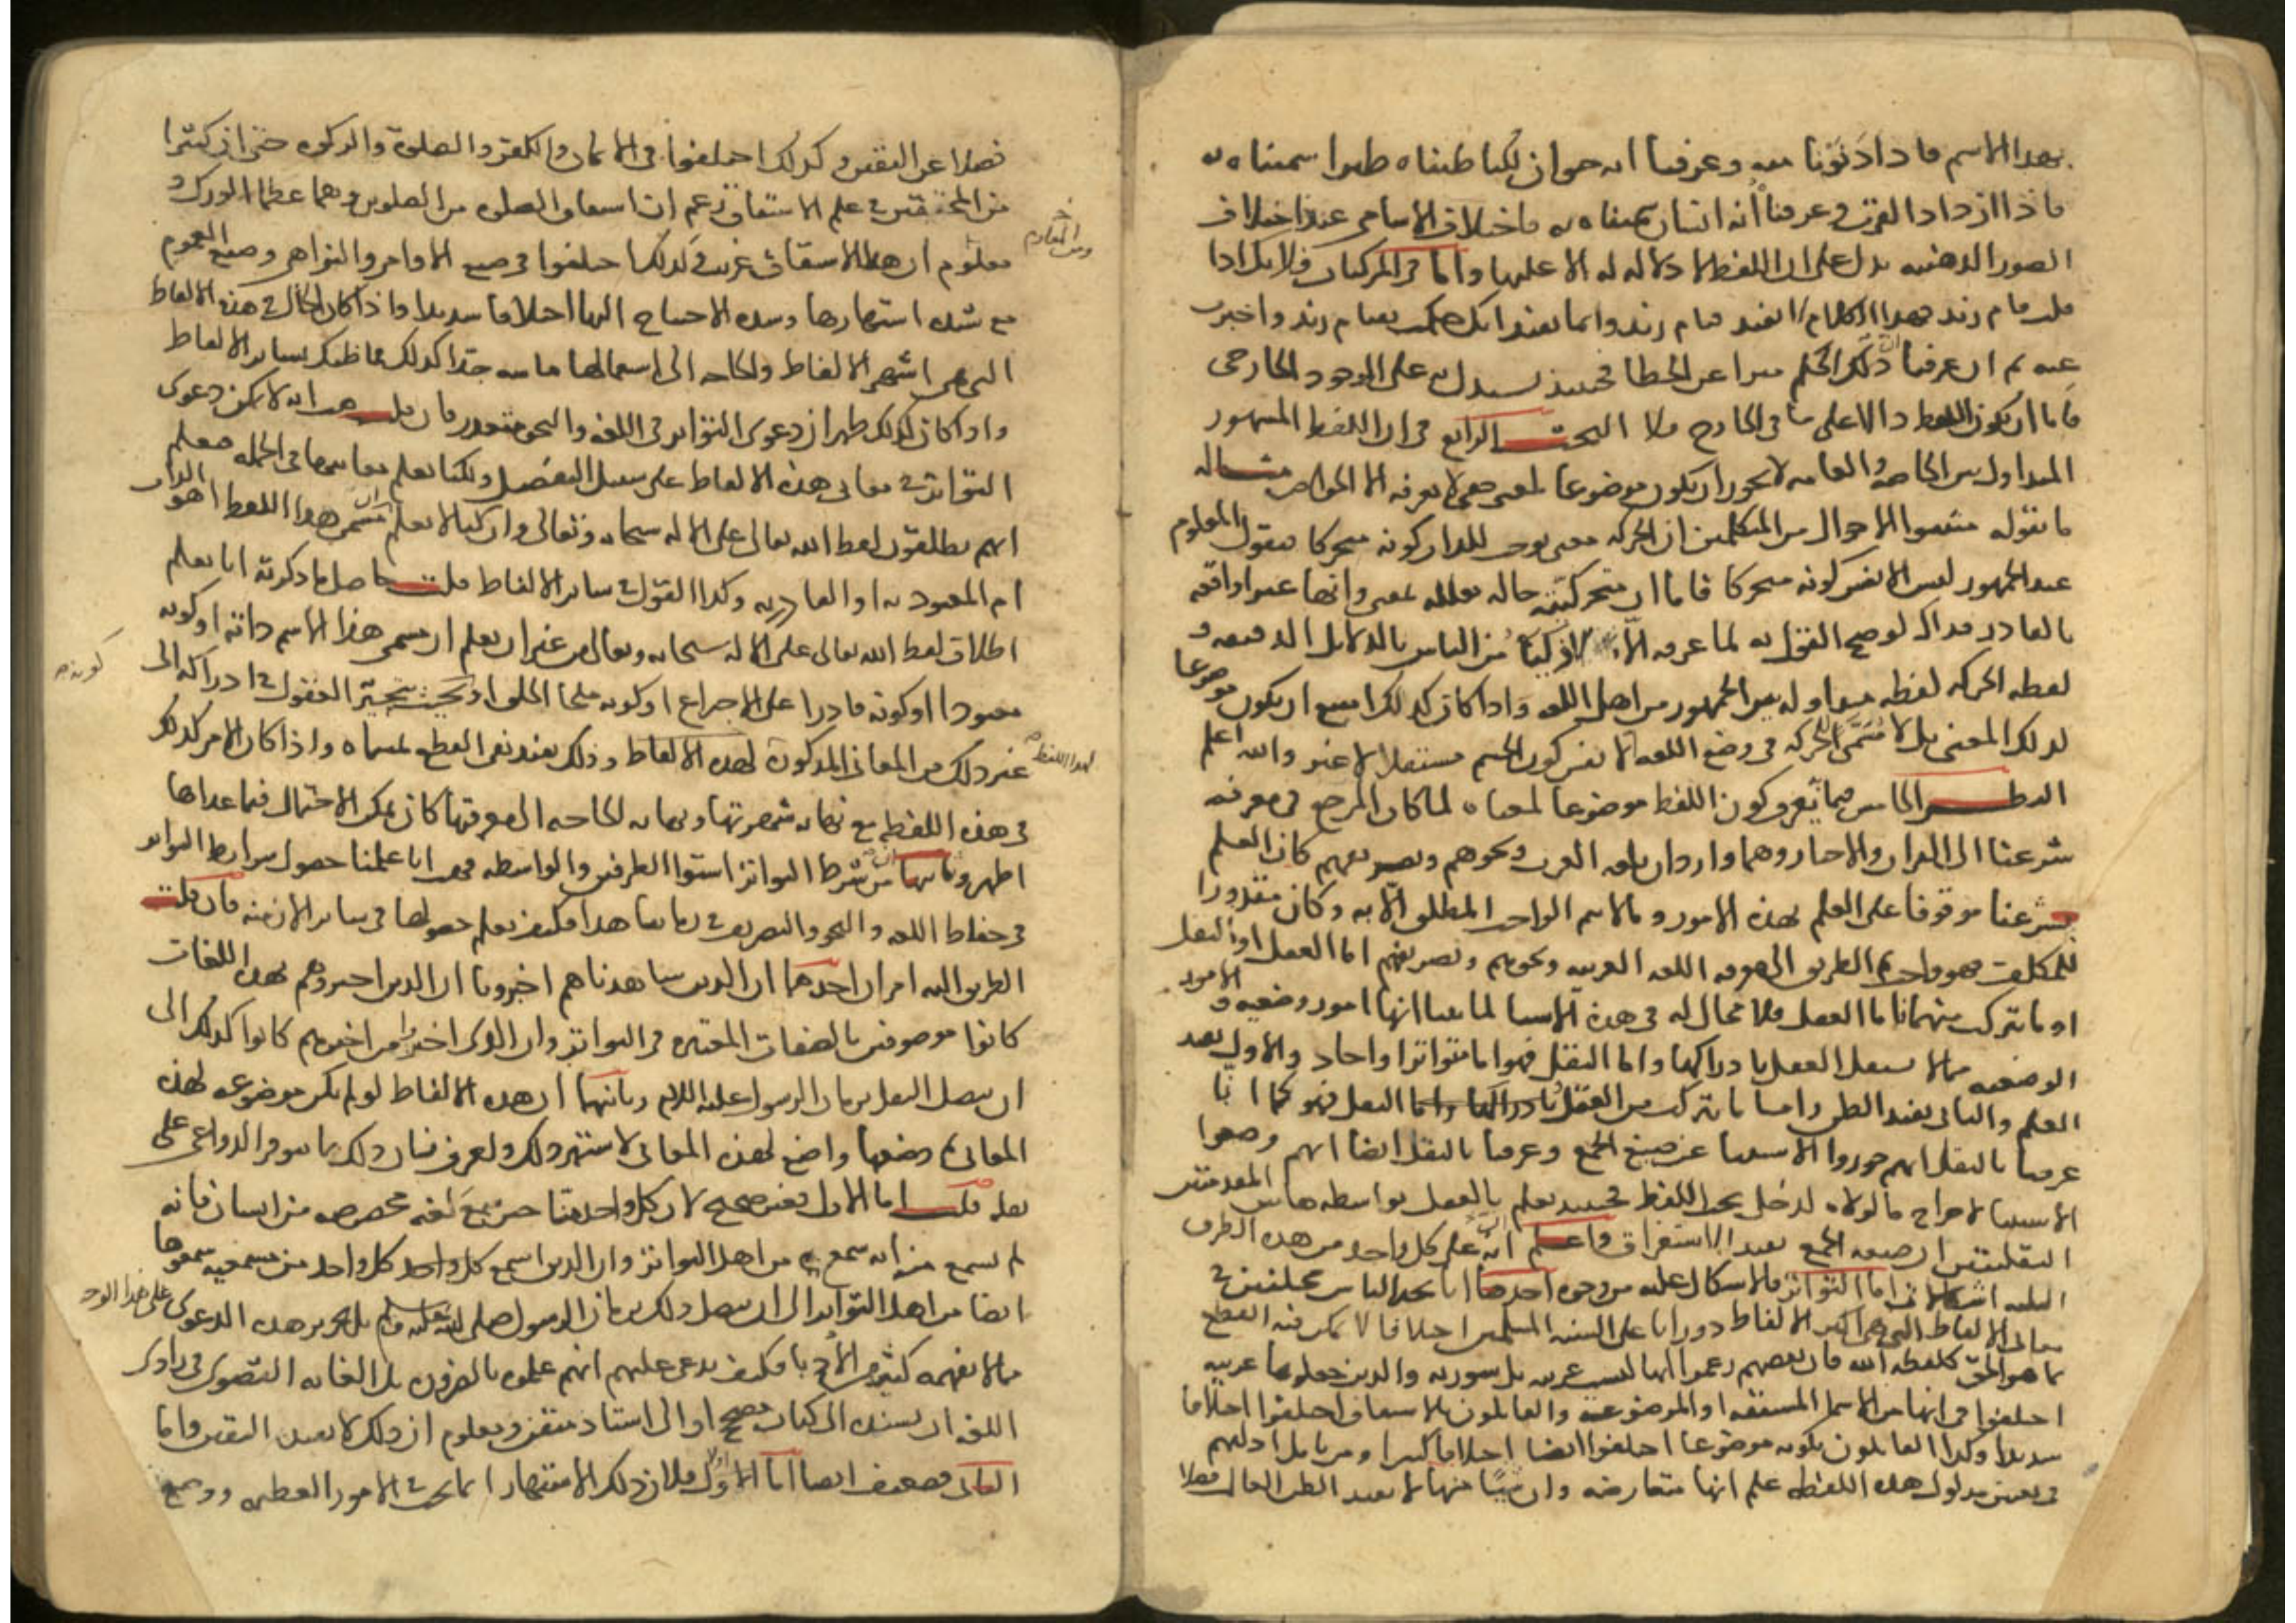 بهذا الاسم فاذا دنونا منه وعرفنا انه حيوان لكنا ظنناه طيرا سميناه به
فاذا ازداد القرب وعرفنا أنه انسان سميناه به فاختلاف الاسامى عند اختلاف
الصور الذهنيه يدل على ان اللفظ لا دلاله له الا عليها واما فى المركبات فلانك اذا
قلت قام زيد فهذا الكلام لا يفيد قيام زيد وانما يفيد انك حكمت بقيام زيد واخبرت
عنه ثم ان عرفنا ان ذلك الحكم مبرا عن الخطا فحينئذ نستدل به على الوجود الخارجى
فاما ان يكون اللفظ دالا على ما فى الخارج فلا البحث الرابع فى ان اللفظ المشهور
المتداول بين الخاصه والعامه لا يجوز ان يكون موضوعا لمعنى خفى لا يعرفه الا الخواص مثاله
ما يقوله مثبتوا الاحوال من المتكلمين ان الحركه معنى يوجب للذات كونه متحركا فنقول المعلوم
عند الجمهور ليس الا نفس كونه متحركا فاما ان متحركيته حاله معلله بمعنى وانها غير واقعه
بالقادر فذاك لو صح القول به لما عرفه الا الاذكيا من الناس بالدلايل الدقيقه و
لفظه الحركه لفظه متداوله بين الجمهور من اهل اللغه واذا كان كذلك امتنع ان يكون موضوعا
لذلك المعنى بل لا مسمى للحركه فى وضع اللغه الا نفس كون الجسم منتقلا لا غير والله اعلم
النظر الخامس فيما يعرف كون اللفظ موضوعا لمعناه لما كان المرجع فى معرفه
شرعنا الى القران والاخبار وهما واردان بلغه العرب ونحوهم وتصريفهم كان العلم
بشرعنا موقوفا على العلم بهذه الامور وما لا يتم الواجب المطلق الا به وكان مقدورا
للمكلف فهو واجب ثم الطريق الى معرفه اللغه العربيه ونحوهم وتصريفهم اما العقل او النقل
او ما يتركب منهما فاما العقل فلا مجال له فى هذه الاشيا لما بينا انها امور وضعيه والامور
الوضعيه مما لا يستقل العقل بادراكها واما النقل فهو اما متواتر او احاد والاول يفيد
العلم والثانى يفيد الظن واما ما يتركب من العقل بادراكها واما النقل فهو كما انا
عرفنا بالنقل انهم جوزوا الاستثنا عن صيغ الجمع وعرفنا بالنقل ايضا انهم وضعوا
الاستثنا لاخراج ما لولاه لدخل تحت اللفظ فحينئذ نعلم بالعقل بواسطه هاتين المقدمتين
النقليتين ان صيغه الجمع تفيد الاستغراق واعلم ان على كل واحد من هذه الطرق
الثلثه اشكالات اما التواتر فالاشكال عليه من وجوه احدها انا نجد الناس مختلفين فى
معانى الالفاظ التى هى اكثر الالفاظ دورانا على السنه المسلمين اختلافا لا يمكن فيه القطع
بما هو الحق كلفظه الله فان بعضهم زعموا انها ليست عربيه بل سوريه والذين جعلوها عربيه
اختلفوا فى انها من الاسما المشتقه او الموضوعه والقايلون بالاشتقاق اختلفوا اختلافا
شديدا وكذا القايلون بكونه موضوعا اختلفوا ايضا اختلافا كثيرا ومن تامل ادلتهم
فى تعيين مدلول هذه اللفظه علم انها متعارضه وان شيئا منها لا يفيد الظن الغالب فضلا
فضلا عن اليقين وكذلك اختلفوا فى الايمان والكفر والصلوة والزكوه حتى ان كثيرا
من المحققين فى علم الاشتقاق زعم ان اشتقاق الصلوه من الصلوين وهما عظما الورك و
ومن المعلوم
معلوم ان هذا الاشتقاق غريب وكذلك اختلفوا فى صيغ الاوامر والنواهى وصيغ العموم
مع شده اشتهارها وشده الاحتياج اليها اختلافا شديدا واذا كان الحال فى هذه الالفاظ
التى هى اشهر الالفاظ والحاجه الى استعمالها ماسه جدا كذلك فما ظنك بساير الالفاظ
واذا كان كذلك ظهر ان دعوى التواتر فى اللغه والنحو متعذر فان قلت هب انه لا يمكن دعوى
التواتر فى معانى هذه الالفاظ على سبيل التفصيل ولكنا نعلم معانيها فى الجمله فنعلم
انهم يطلقون لفظ الله تعالى على الاله سبحانه وتعالى وان كنا لا نعلم ان مسمى هذا اللفظ اهو الذات
ام المعبوديه او القادريه وكذا القول فى ساير الالفاظ قلت حاصل ما ذكرته انا نعلم
اطلاق لفظ الله تعالى على الاله سبحانه وتعالى من غير ان نعلم ان مسمى هذا الاسم ذاته او كونه
كونه
معبودا او كونه قادرا على الاختراع او كونه ملجا الخلق او بحيث تتحير العقول فى ادراكه الى
لهذا اللفظ
غير ذلك من المعانى المذكورة لهذه الالفاظ وذلك يفيد نفى القطع بمسماه واذا كان الامر كذلك
فى هذه اللفظه مع نهايه شهرتها ونهايه الحاجه الى معرفتها كان تمكن الاحتمال فيما عداها
اظهر وثانيها ان من شرط التواتر استوا الطرفين والواسطه فهب انا علمنا حصول شرايط التواتر
فى حفاظ اللغه والنحو والتصريف فى زماننا هذا فكيف نعلم حصولها فى ساير الازمنه فان قلت
الطريق اليه امران احدهما ان الذين شاهدناهم اخبرونا ان الذين اخبروهم بهذه اللغات
كانوا موصوفين بالصفات المعتبره فى التواتر وان الذى اخبروا من اخبرهم كانوا كذلك الى
ان يتصل النقل بزمان الرسول عليه السلام وثانيهما ان هذه الالفاظ لو لم يكن موضوعه لهذه
المعانى ثم وضعها واضع لهذه المعانى لاشتهر ذلك ولعرف فان ذلك مما تتوفر الدواعى على
نقله قلت اما الاول فغير صحيح لان كل واحد منا حين سمع لغه مخصوصه من انسان فانه
لم يسمع منه انه سمع من اهل التواتر وان الذين اسمع كل واحد كل واحد من مسمعيه سمعوها
ايضا من اهل التواتر الى ان يتصل ذلك بزمان الرسول صلى الله عليه وسلم بل تحرير هذه الدعوى على هذا الوجه
مما لا يفهمه كثير من الادبا فكيف يدعى عليهم انهم علموه بالضروره بل الغايه القصوى فى راوى
اللغه ان يسنده الى كتاب مصحح او الى استاد متقن ومعلوم ان ذلك لا يفيد اليقين واما
الثانى فضعيف ايضا اما اولا فلان ذلك الاشتهار انما يجب فى الامور العظيمه ووضع